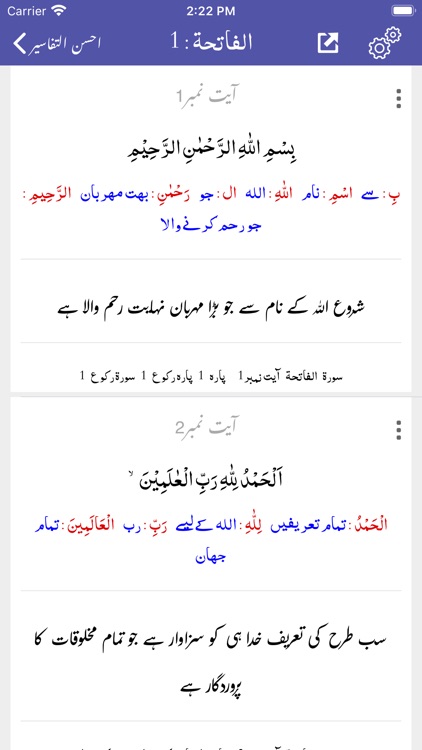 Carrier 2:22 PM
احسن التفاسیر الفاتحة : 1
آیت نمبر1
بِسْمِ اللّٰهِ الرَّحْمٰنِ الرَّحِیْمِ
بِ : سے اسْمِ : نام اللّٰهِ : الله ال : جو رَحْمٰنِ : بهت مهربان الرَّحِيمِ :
جو رحم کرنے والا
شروع اللہ کے نام سے جو بڑا مہربان نہایت رحم والا ہے
سورة الفاتحة آیت نمبر1 پارہ 1 پارہ رکوع 1 سورة رکوع 1
آیت نمبر2
اَلْحَمْدُ لِلّٰهِ رَبِّ الْعٰلَمِیْنَ ۙ
الْحَمْدُ : تمام تعریفیں لِلّٰهِ : الله کے لیے رَبِّ : رب الْعَالَمِينَ : تمام
جهان
سب طرح کی تعریف خدا ہی کو سزاوار ہے جو تمام مخلوقات کا
پروردگار ہے